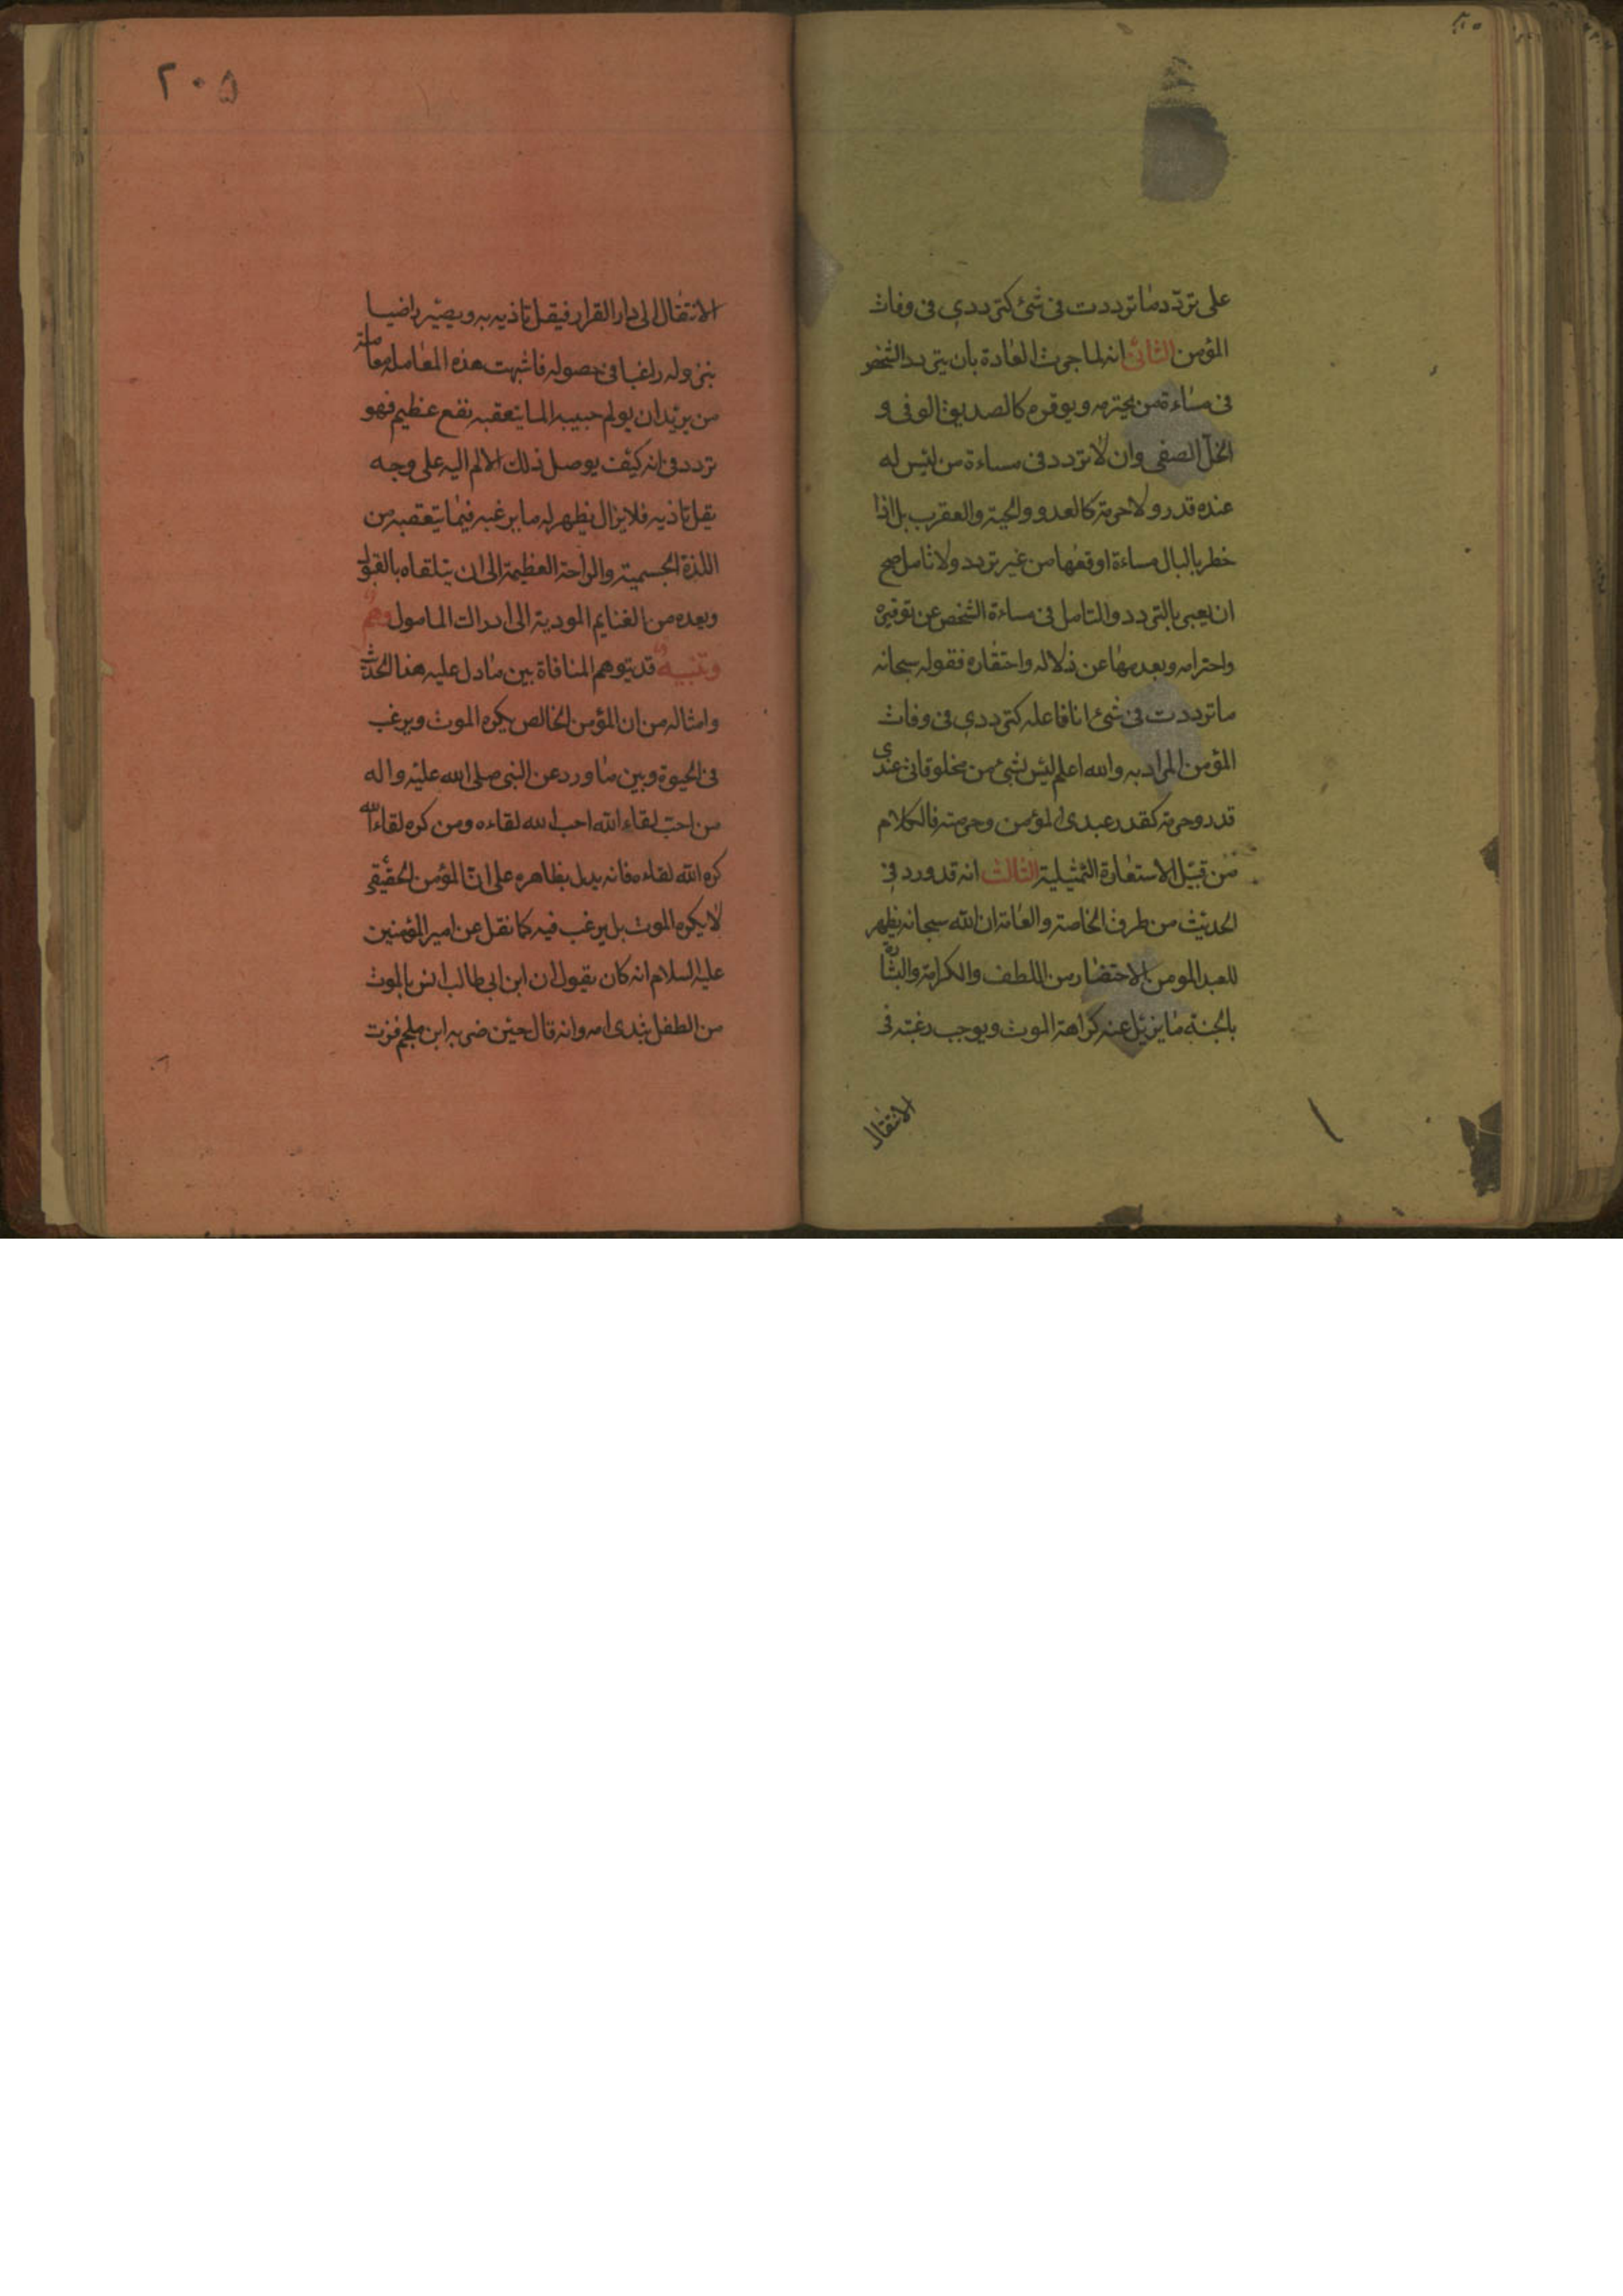 على تردّد ما ترددت فى شئ كترددي فى وفات
المؤمن الثانى انه لما جرت العادة بان يتردد الشخص
فى مساءة من يحترمه ويوقره كالصديق الوفى و
الخل الصفى وان لا تردد فى مساءة من ليس له
عنده قدر ولا حرمة كالعدو والحية والعقرب بل اذا
خطر بالبال مساءة اوقعها من غير تردد ولا تامل صح
ان يعبى بالتردد والتامل فى مساءة الشخص عن توقيره
واحترامه وبعدمهما عن ذلاله واحتقاره فقوله سبحانه
ما ترددت فى شئ انا فاعله كترددي فى وفات
المؤمن المراد به والله اعلم ليس لشئ من مخلوقاتى عندى
قدر وحرمة كقدر عبدى المؤمن وحرمته فالكلام
من قبيل الاستعارة التمثيلية الثالث انه قد ورد فى
الحديث من طرق الخاصة والعامة ان الله سبحانه يظهر
للعبد المومن الاحتضار من اللطف والكرامة والبشارة
بالجنة ما يزيل عنه كراهة الموت ويوجب رغبته فى
الانتقال
٢٠٥
الانتقال الى دار القرار فيقل تاذيه به ويصير راضيا
بنزوله راغبا فى حصوله فاشبهت هذه المعاملة معاملة
من يريد ان يولم حبيبه الما يتعقبه نفع عظيم فهو
تردد فى انه كيف يوصل ذلك الالم اليه على وجه
يقل تاذيه فلا يزال يظهر له ما يرغبه فيما يتعقبه من
اللذة الجسمية والراحة العظيمة الى ان يتلقاه بالقبول
وبعده من الغنايم المودية الى ادراك المامول وهم
وتنبيه قد يتوهم المنافاة بين ما دل عليه هذا الحديث
وامثاله من ان المؤمن الخالص يكره الموت ويرغب
فى الحيوة وبين ما ورد عن النبى صلى الله عليه واله
من احبّ لقاء الله احب الله لقاءه ومن كره لقاء الله
كره الله لقاءه فانه يدل بظاهره على ان المؤمن الحقيقى
لا يكره الموت بل يرغب فيه كما نقل عن امير المؤمنين
عليه السلام انه كان يقول ان ابن ابى طالب انس بالموت
من الطفل بثدى امه وانه قال حين ضربه ابن ملجم فزت